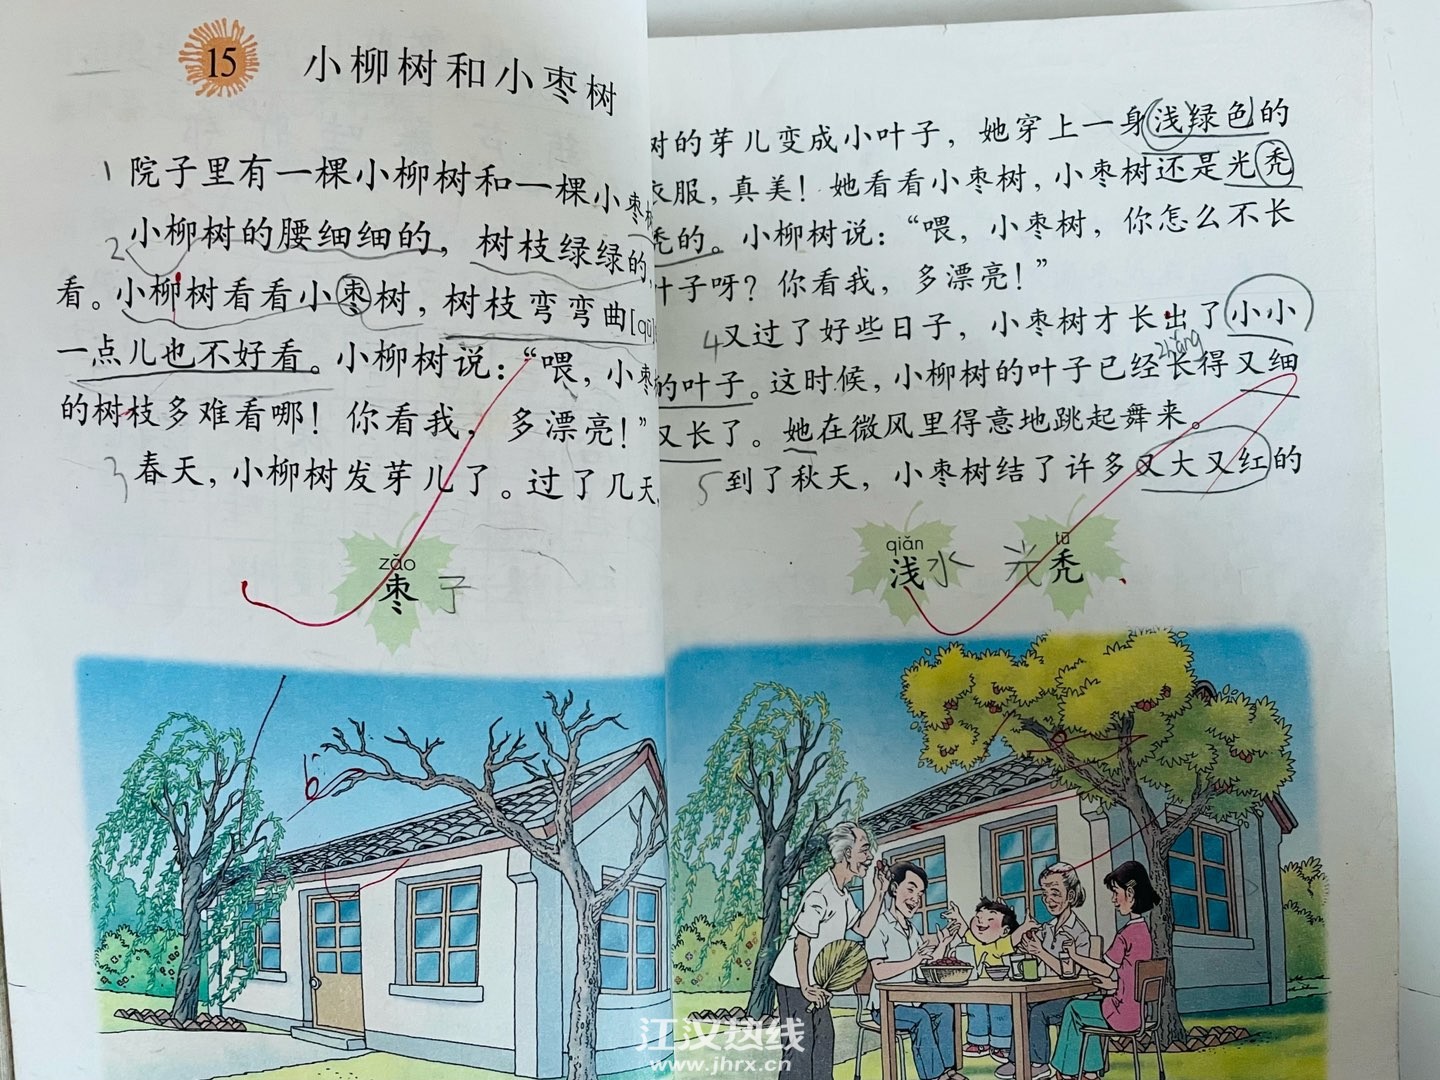 15 小柳树和小枣树
1 院子里有一棵小柳树和一棵小枣
2 小柳树的腰细细的，树枝绿绿的，
看。小柳树看看小枣树，树枝弯弯曲[qū]
一点儿也不好看。小柳树说：“喂，小枣
的树枝多难看哪！你看我，多漂亮！”
3 春天，小柳树发芽儿了。过了几天，
zǎo
枣子
树的芽儿变成小叶子，她穿上一身浅绿色的
衣服，真美！她看看小枣树，小枣树还是光秃
秃的。小柳树说：“喂，小枣树，你怎么不长
叶子呀？你看我，多漂亮！”
4 又过了好些日子，小枣树才长出了小小
zhǎng
的叶子。这时候，小柳树的叶子已经长得又细
又长了。她在微风里得意地跳起舞来。
5 到了秋天，小枣树结了许多又大又红的
qiǎn tū
浅水 光秃
江汉热线
www.jhrx.cn